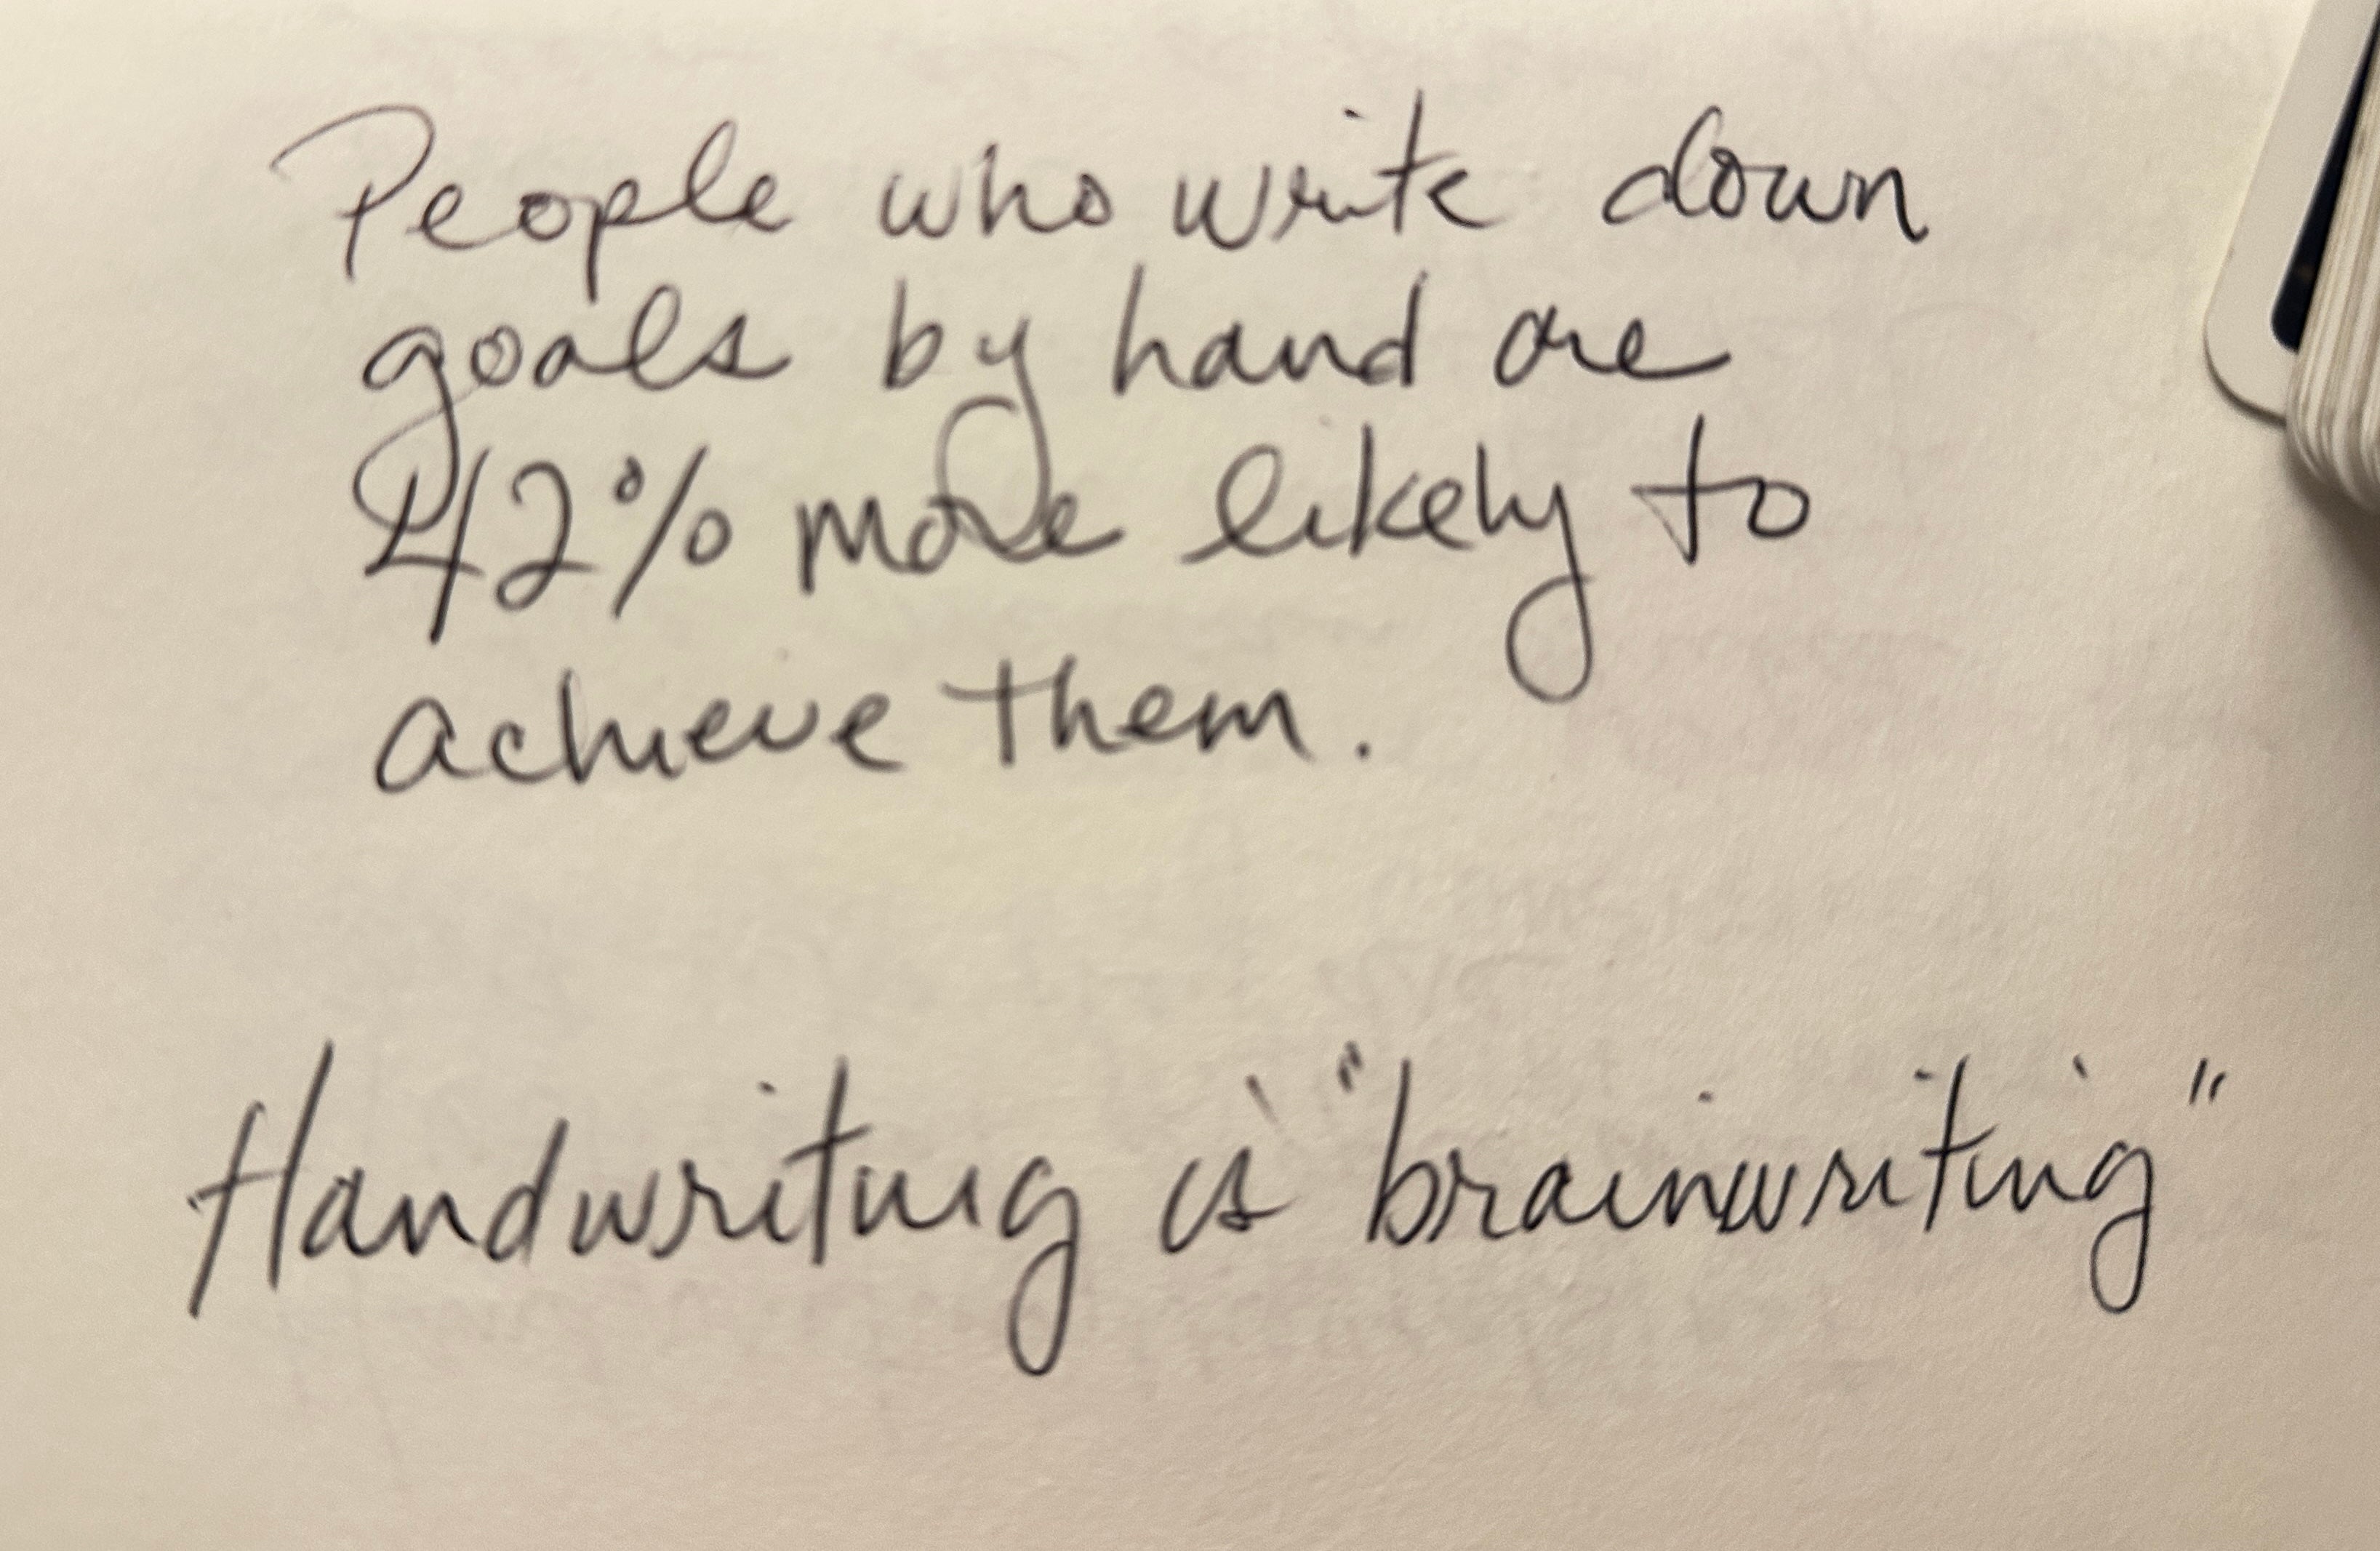 People who write down
goals by hand are
42% more likely to
achieve them.
Handwriting is "brainwriting"